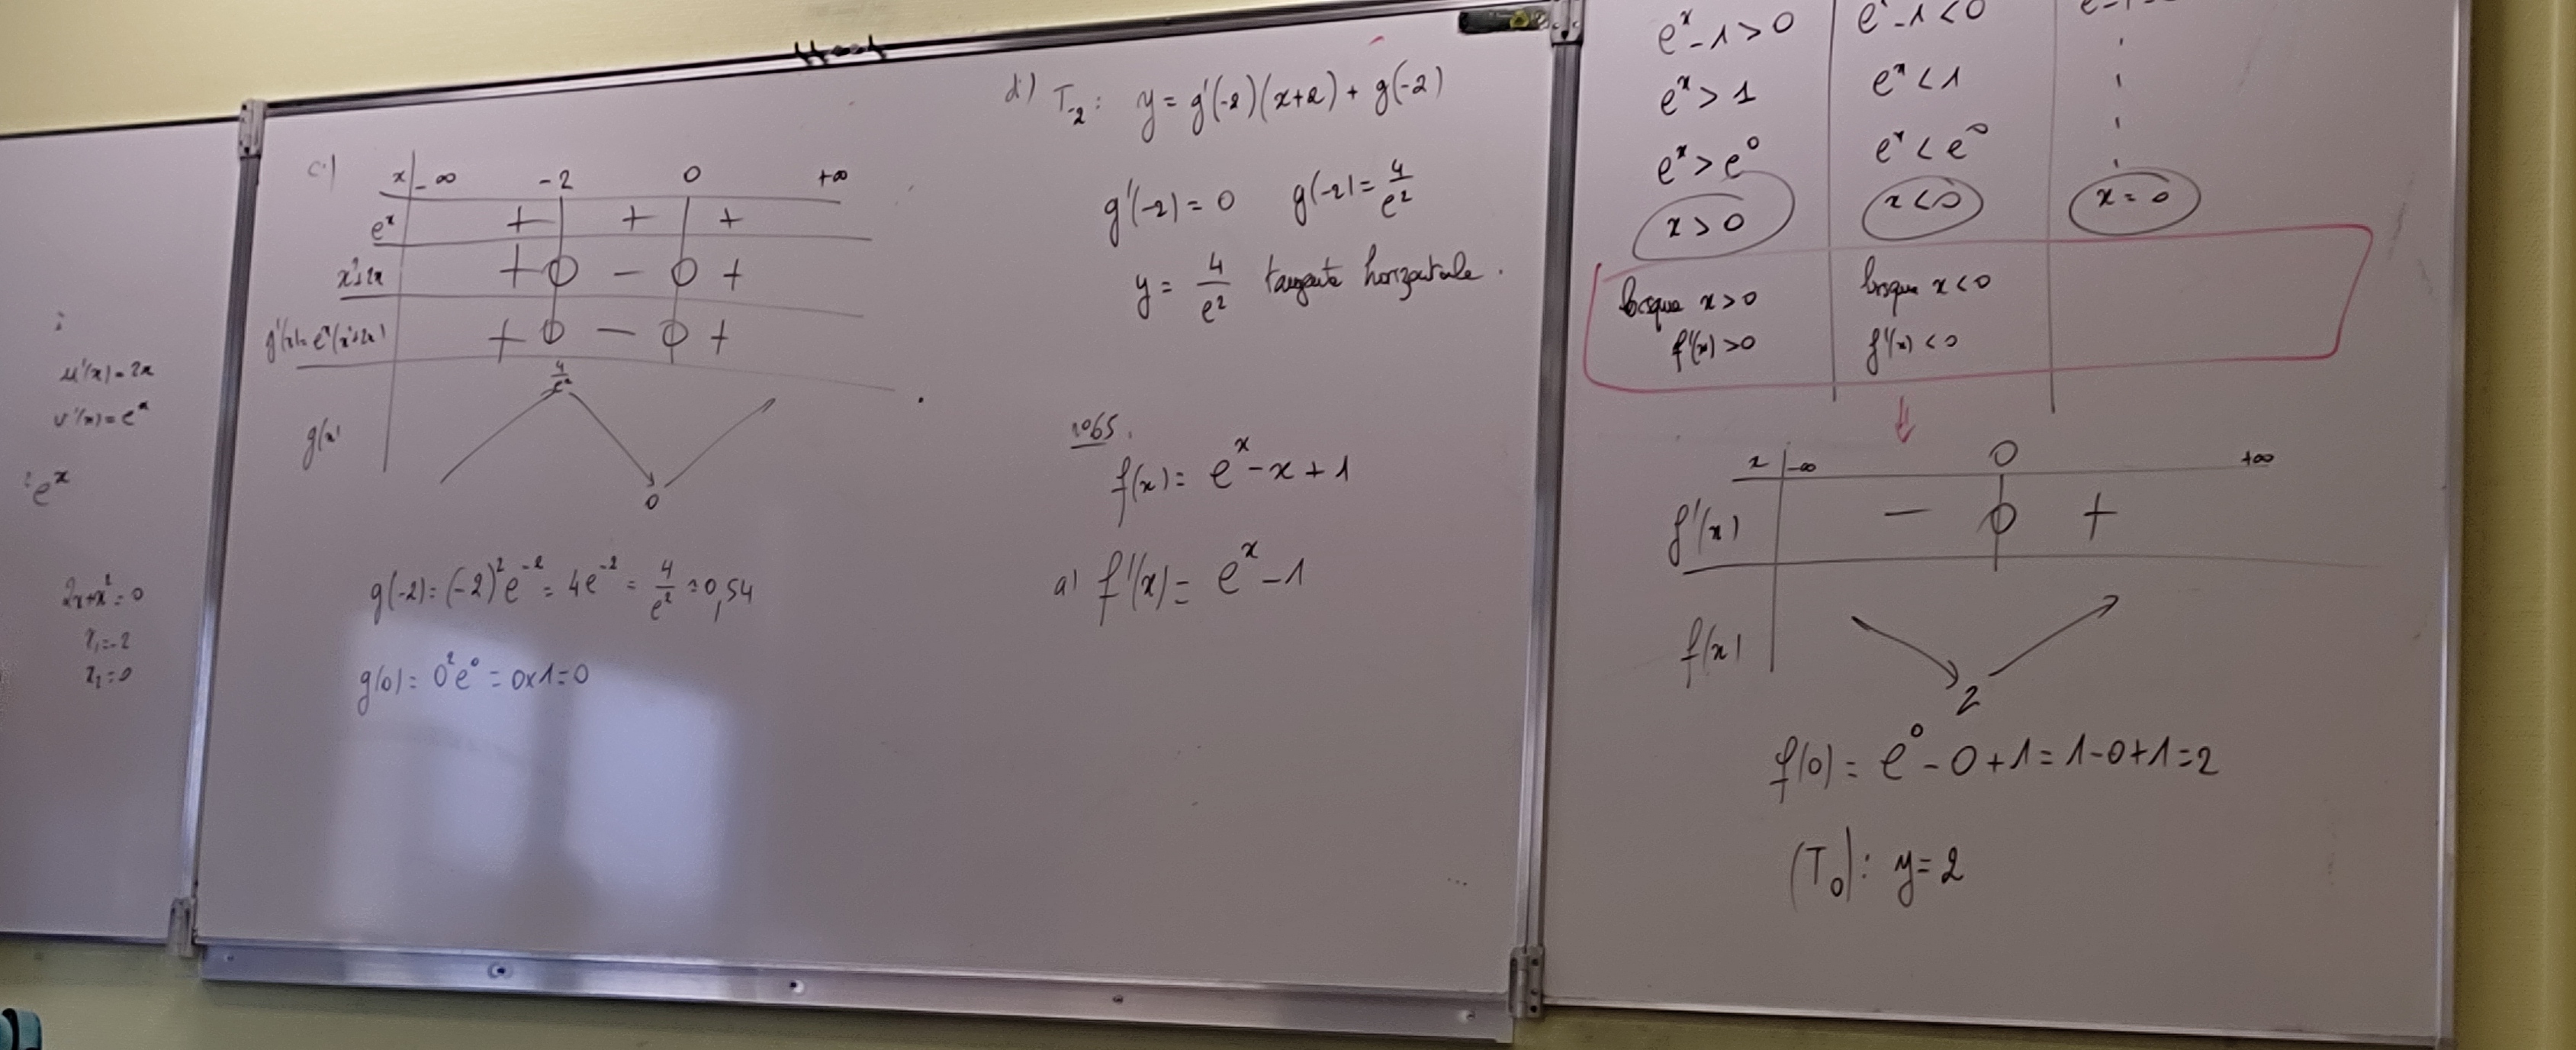 u'(x)=2x
v'(x)=e^x
e^x
2x+x²=0
x₁=-2
x₂=0
c)
x -∞ -2 0 +∞
e^x + + +
x²+2x + 0 - 0 +
g'(x)=e^x(x²+2x) + 0 - 0 +
4/e²
g(x)
0
g(-2)=(-2)²e^-2 = 4e^-2 = 4/e² ≈ 0,54
g(0)= 0²e⁰ = 0x1=0
d) T₋₂: y = g'(-2)(x+2) + g(-2)
g'(-2) = 0 g(-2)= 4/e²
y = 4/e² tangente horizontale.
n°65.
f(x)= e^x - x + 1
a) f'(x)= e^x - 1
e^x - 1 > 0 e^x - 1 < 0
e^x > 1 e^x < 1
e^x > e⁰ e^x < e⁰
x > 0 x < 0 x = 0
lorsque x > 0 lorsque x < 0
f'(x) > 0 f'(x) < 0
x -∞ 0 +∞
f'(x) - 0 +
f(x)
2
f(0) = e⁰ - 0 + 1 = 1-0+1=2
(T₀): y = 2